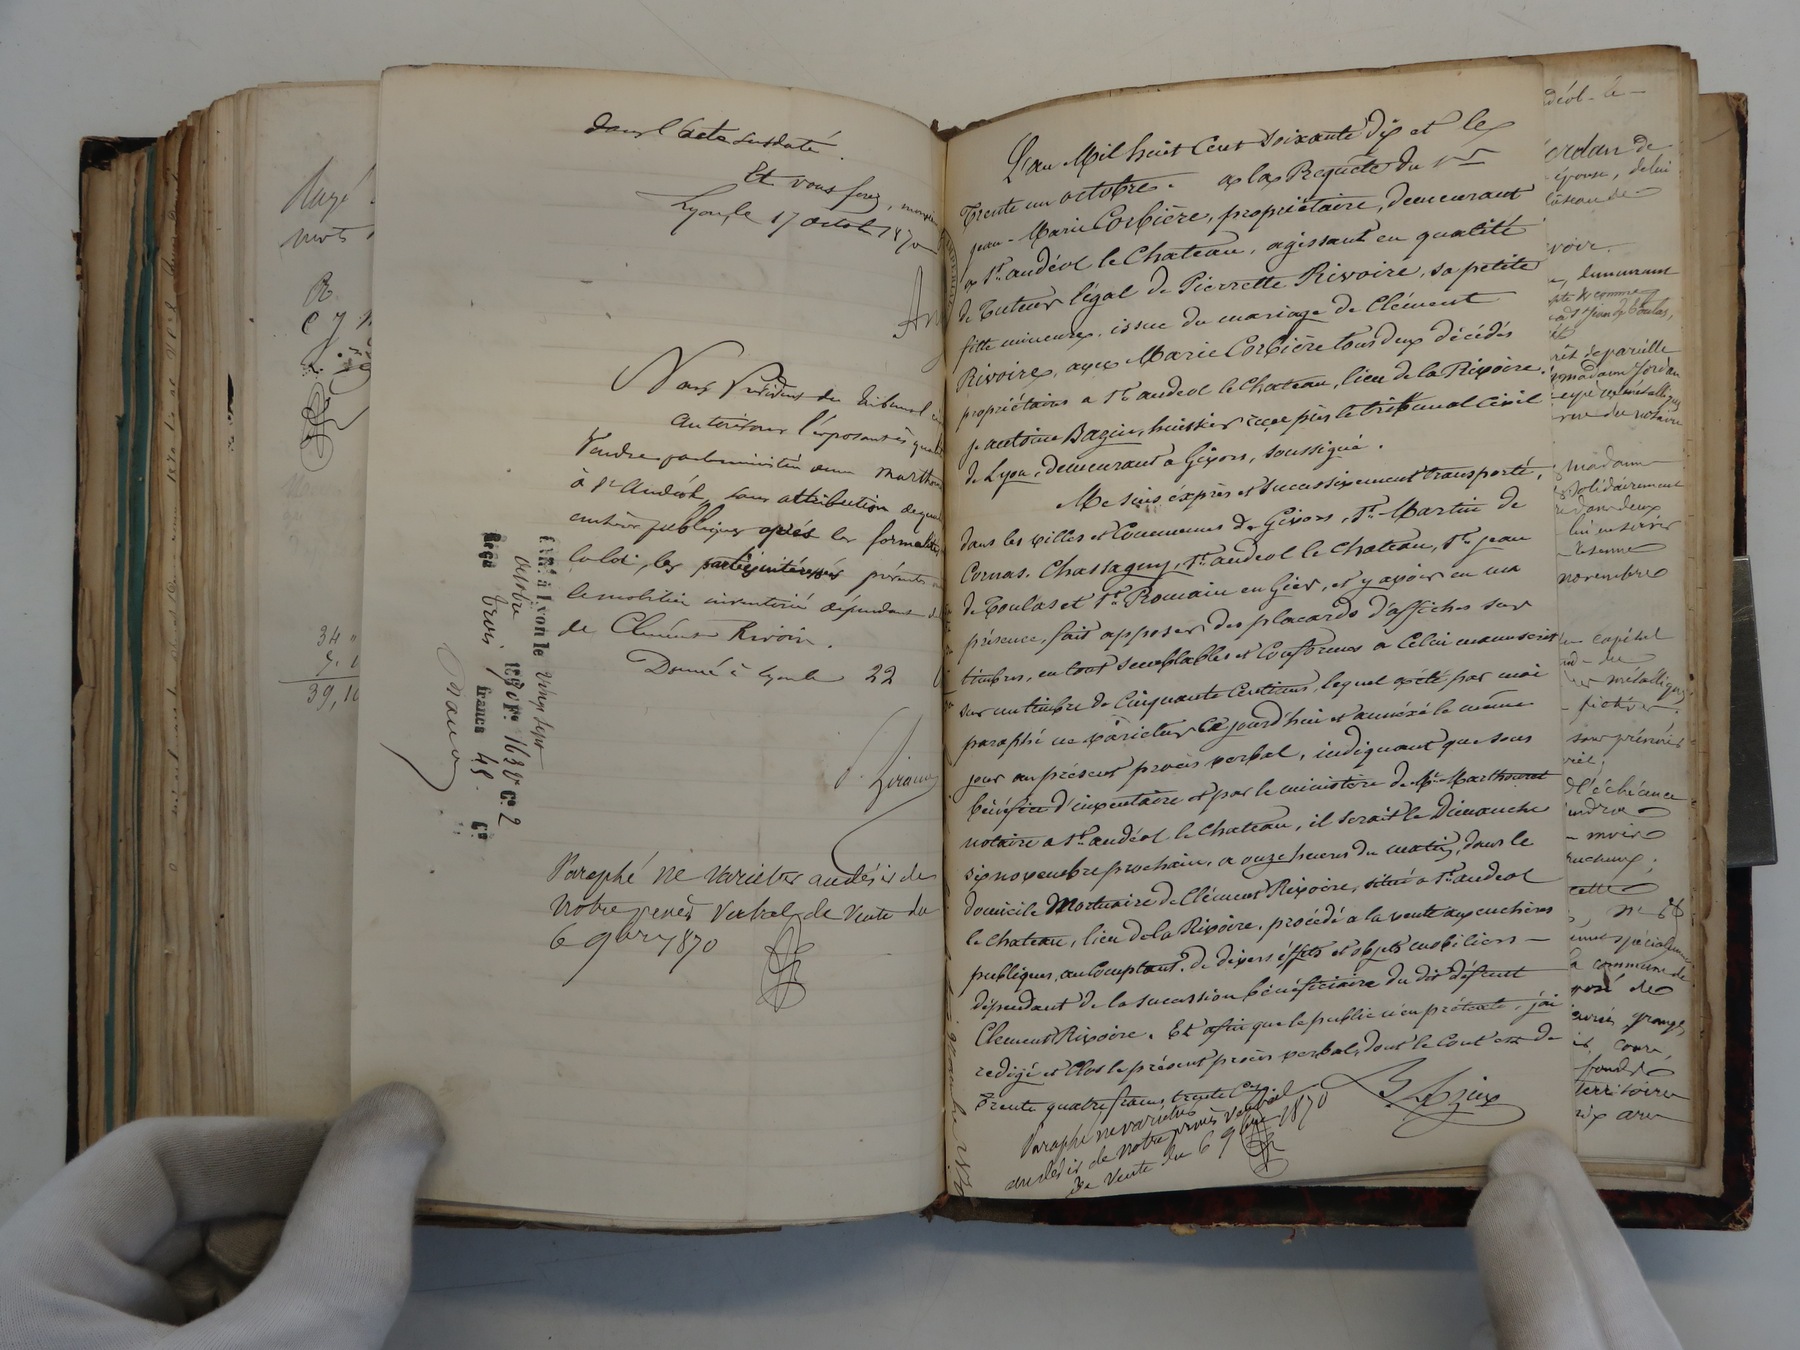 dans l'acte susdaté.
Et vous ferez,
Lyon, le 17 octobre 1870
Nous Président du Tribunal
autorisons l'exposant ès qualité
Vendre par le ministère de me Marthou
à St Andéol, sans attribution de qual
enchères publiques après les formalités
la loi, les parties intéressées présentes
le mobilier inventorié dépendant de
de Clément Rivoire.
Donné à Lyon le 22
Paraphé ne varietur au désir de
notre procès verbal de vente du
6 9bre 1870
Enr.é à Lyon le vingt sept
octobre 1870 F.º 163 V.º C.e 2
Reçu trois francs 45 C.es
34 "
39,10
L'an Mil huit Cent Soixante dix et le
Trente un octobre. a la Requête du Sr
Jean-Marie Corbière, propriétaire, demeurant
a St andéol le Chateau, agissant en qualité
de Tuteur légal de Pierrette Rivoire, sa petite
fille mineure, issue du mariage de Clément
Rivoire, avec Marie Corbière tous deux décédés
propriétaires a St andeol le Chateau, lieu de la Rivoire.
je antoine Bazin, huissier reçu près le tribunal Civil
de Lyon, demeurant a Givors, soussigné.
Me suis éxprès et successivement transporté,
dans les villes et Communes de Givors, St Martin de
Cornas, Chassagny, St andeol le Chateau, St jean
de Toulas et St Romain en Gier, et y avoir en ma
présence, fait apposer des placards d'affiches sur
timbres, en tout semblables et Conformes a Celui manuscrit
sur un timbre de Cinquante Centimes, lequel a été par moi
paraphé ne varietur Cejourd'hui et annéxé le même
jour au présent procès verbal, indiquant que sous
bénéfice d'inventaire et par le ministère de Me Marthouret
notaire a St andéol le Chateau, il serait le Dimanche
six novembre prochain, a onze heures du matin, dans le
domicile Mortuaire de Clément Rivoire, situé a St andeol
le Chateau, lieu de la Rivoire, procédé a la vente aux enchères
publiques, au Comptant, de divers éffets et objets mobiliers
dépendant de la succession bénéficiaire du dit défunt
Clement Rivoire. Et afin que le public n'en prétexte, j'ai
redigé et Clos le présent procès verbal, dont le Cout est de
Trente quatre francs trente Ces.
Bazin
Paraphé ne varietur
au désir de notre procès verbal
de vente du 6 9bre 1870
déol-le-
ordan de
épouse, de lui
demeurant
madame Jordan
du notaire
madame
solidairement
novembre
capital
métallique
d'échéance
cette
spécialement
la commune de
cour,
territoire